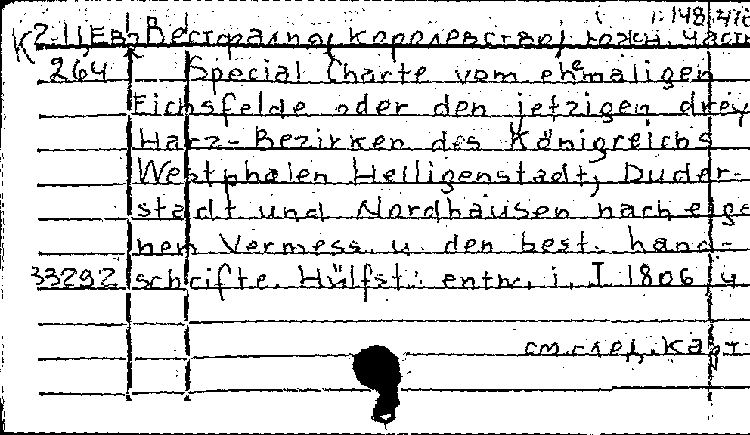 1:148,470
К 2-11,Ев7 Вестфалног королевство, южн. част
264 Special Charte vom ehemaligen
Eichsfelde oder den jetzigen drey
Harz-Bezirken des Königreichs
Westphalen Heiligenstadt, Duder-
stadt und Nordhausen nach eige
nen Vermess. u. den best. hand-
33292 schrifte. Hülfst. entw. i. J 1806 u
см. след. карт